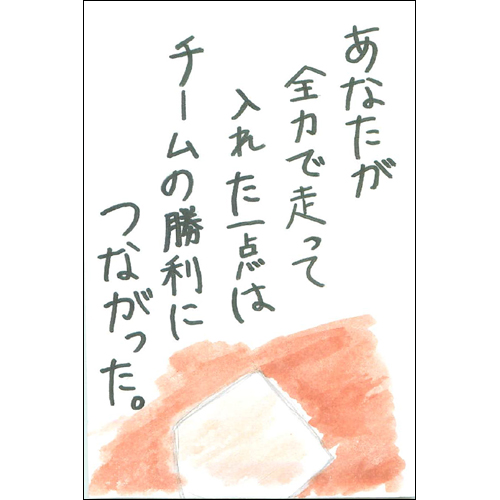 あなたが
全力で走って
入れた一点は
チームの勝利に
つながった。